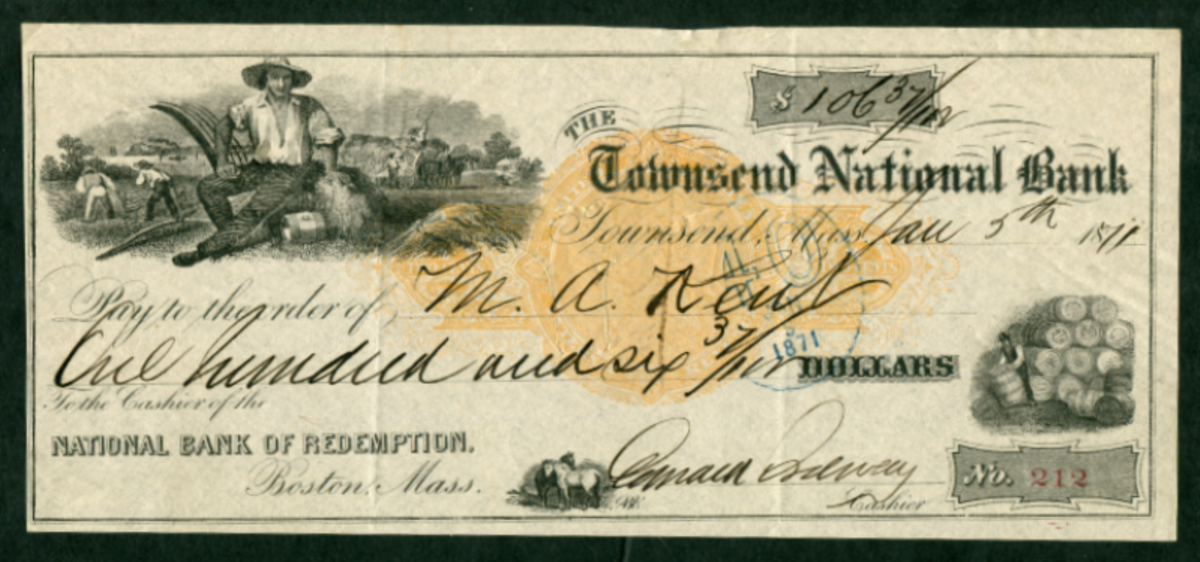 $ 106 37/100
THE
Townsend National Bank
Townsend, Mass Jan 5th 1871
Pay to the order of M. A. Kent
One hundred and six 37/100 DOLLARS
1871
To the Cashier of the
NATIONAL BANK OF REDEMPTION.
Boston, Mass.
Edward
Cashier
No. 212